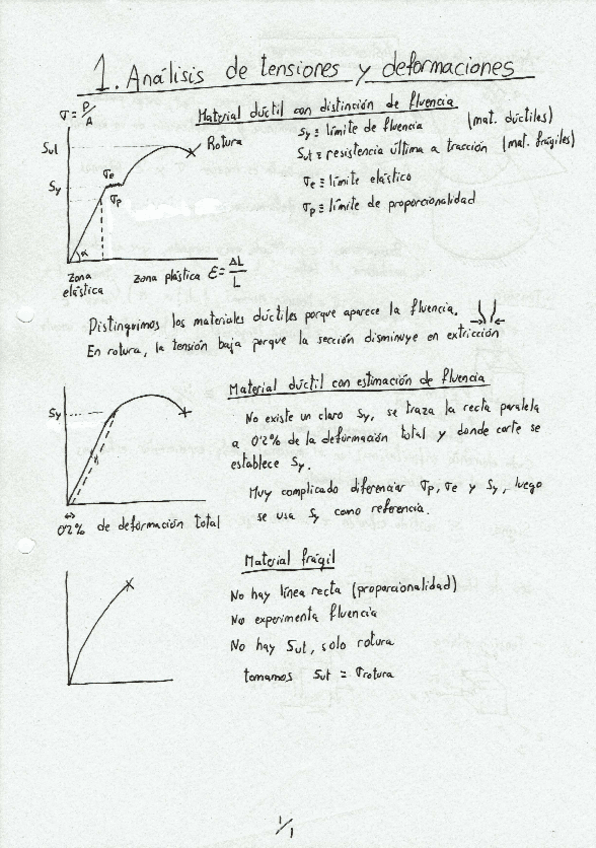 1. Análisis de tensiones y deformaciones
σ = P/A
Material dúctil con distinción de fluencia
Sy ≡ límite de fluencia (mat. dúctiles)
Sut ≡ resistencia última a tracción (mat. frágiles)
σe ≡ límite elástico
σp ≡ límite de proporcionalidad
Sut
Rotura
σe
Sy
σp
α
zona elástica
zona plástica
ε = ΔL/L
Distinguimos los materiales dúctiles porque aparece la fluencia.
En rotura, la tensión baja porque la sección disminuye en extricción
Material dúctil con estimación de fluencia
Sy
No existe un claro Sy, se traza la recta paralela
a 0'2% de la deformación total y donde corte se
establece Sy.
Muy complicado diferenciar σp, σe y Sy, luego
se usa Sy como referencia.
0'2% de deformación total
Material frágil
No hay línea recta (proporcionalidad)
No experimenta fluencia
No hay Sut, solo rotura
tomamos Sut = σrotura
1/1